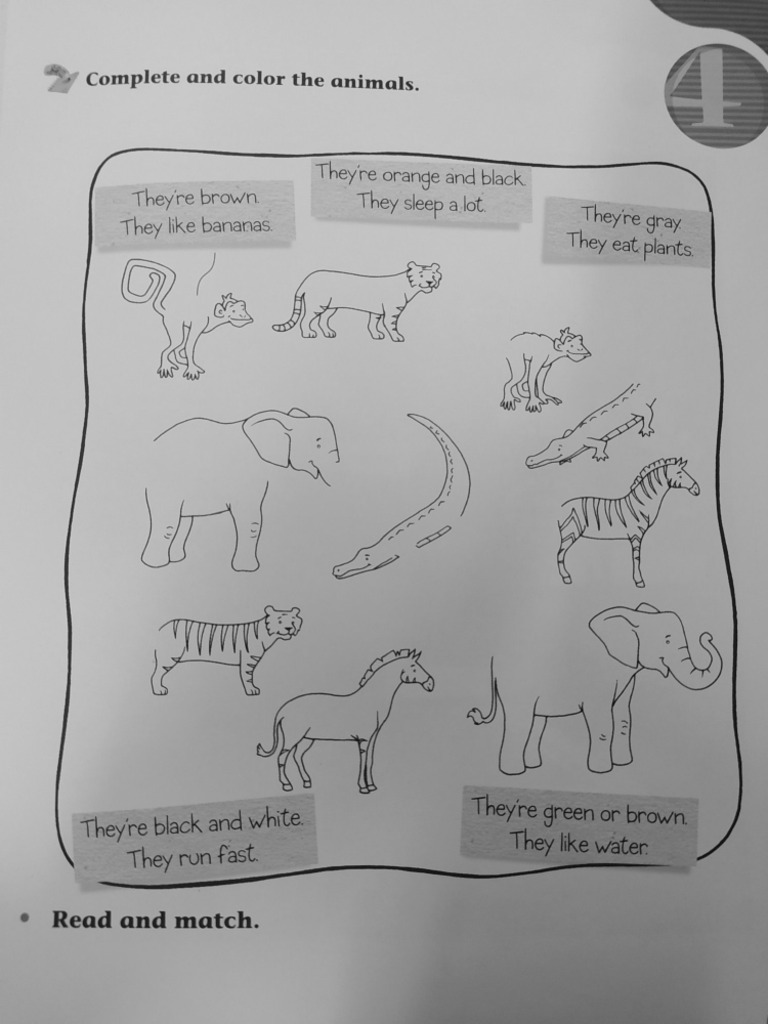 2 Complete and color the animals.
4
They're brown.
They like bananas.
They're orange and black.
They sleep a lot.
They're gray.
They eat plants.
They're black and white.
They run fast.
They're green or brown.
They like water.
• Read and match.